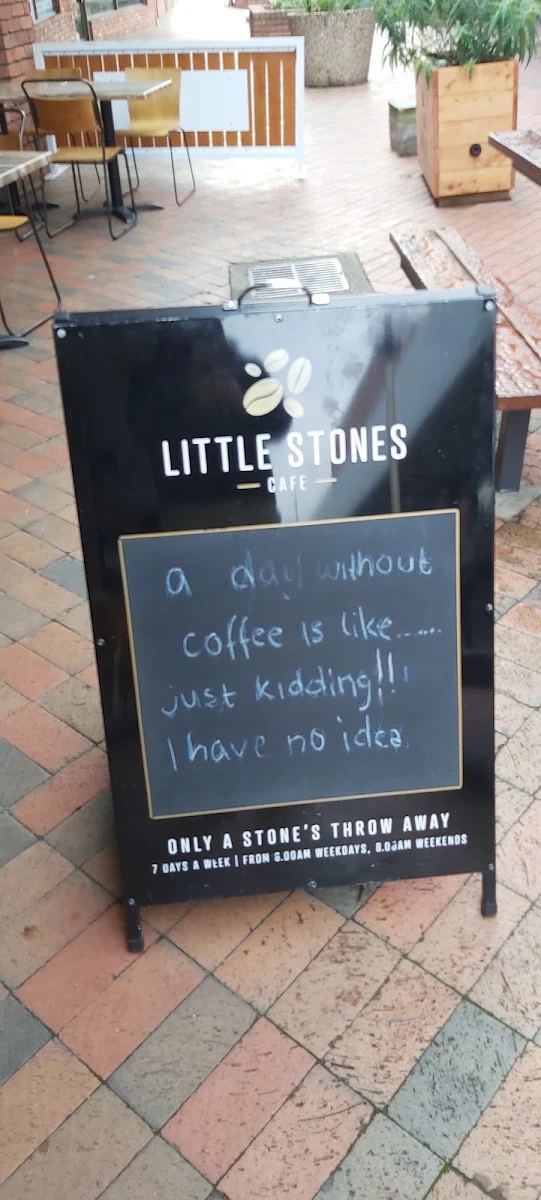 LITTLE STONES
CAFE
a day without
coffee is like.......
just kidding!!!
I have no idea.
ONLY A STONE'S THROW AWAY
7 DAYS A WEEK | FROM 6.00AM WEEKDAYS, 8.00AM WEEKENDS